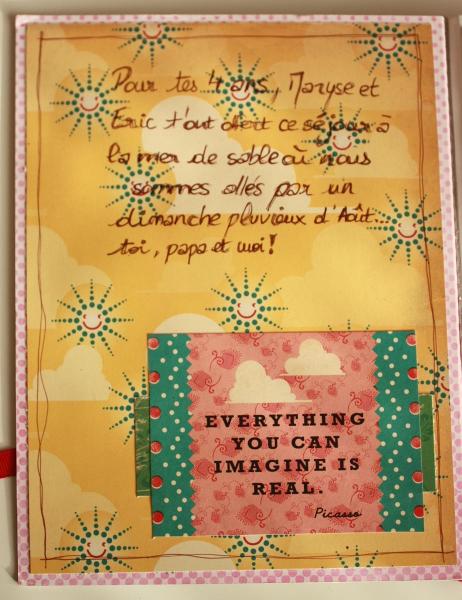 Pour tes 4 ans, Maryse et
Eric t'ont offert ce séjour à
la mer de sable où nous
sommes allés par un
dimanche pluvieux d'Août...
toi, papa et moi!
EVERYTHING
YOU CAN
IMAGINE IS
REAL.
Picasso